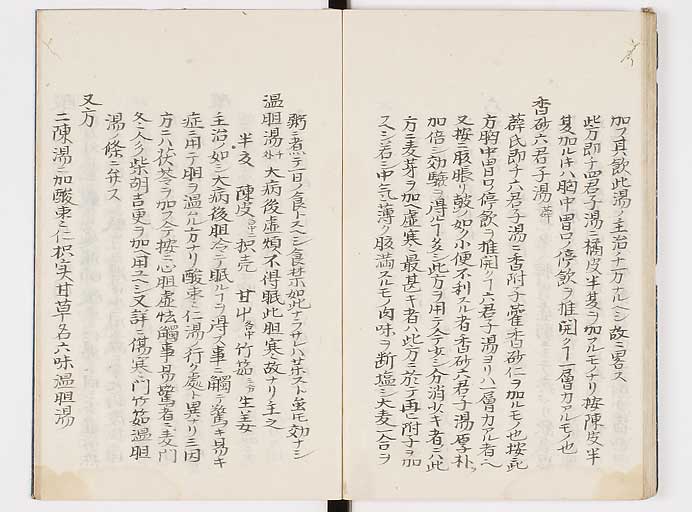 加フ其飲此湯ノ主治ノ一方ナルヘシ故ニ畧ス
此方即チ四君子湯ニ橘皮半夏ヲ加アルモノナリ按陳皮半
夏加ルキハ胸中胃口ノ停飲ヲ推開クコ一層力アルモノ也
香砂六君子湯
薛氏即チ六君子湯ニ香附子藿香砂仁ヲ加ルモノ也按此
方胸中胃口ノ停飲ヲ推開クコ六君子湯ヨリハ一層力アル者ヘ
又按ニ腹脹リ皷ノ如ク小便不利スル者香砂六君子湯厚朴ヲ
加倍シ効驗ヲ得ルコ多シ此方ヲ用テ全ク分消少キ者ニハ此
方ニ麦芽ヲ加虚寒ノ最甚キ者ハ此方ニ於テ再ヒ附子ヲ加
スヘシ若シ中氣薄ク腹満スルモノ肉味ヲ断塩シ大麦一合ヲ
粥ニ煮テ一日ノ食トスヘシ食禁如此ナラサレハ藥ストモ效ナシ
温胆湯 大病後虚煩不得眠此胆寒故ナリ主之
半夏 陳皮 枳壳 甘草 竹茹 生姜
主治ノ如シ大病後胆冷テ眠ルコヲ得ス事ニ觸テ驚キ易キ
症ニ用テ胆ヲ温ムル方ナリ酸棗仁湯ノ行ク處ト異ナリ三因
方ニハ茯苓ヲ加フ今按ニ心胆虚怯觸事易驚者ニ麦門
冬ニ人参柴胡吉更ヲ加ヘ用スヘシ又詳ニ傷寒ノ門竹茹温胆
湯ノ條ニ弁ス
又方
二陳湯ニ加酸棗仁枳実甘草各六味温胆湯